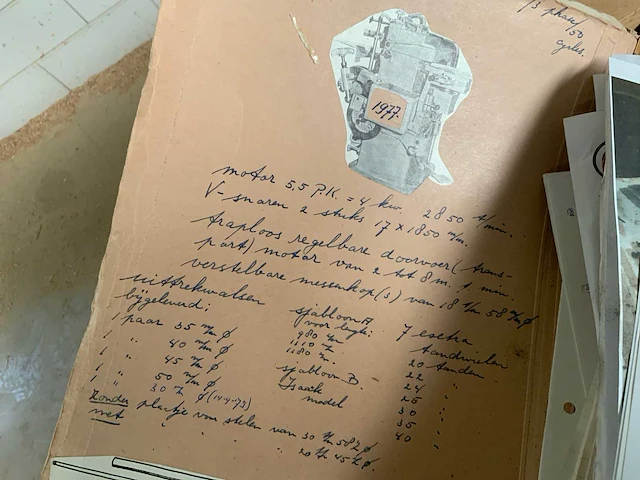 /3 phase/
50
cycles.
1977.
motor 5,5 P.K. = 4 kw. 2850 t/min.
V-snaren 2 stuks 17 x 1850 m/m.
traploos regelbare doorvoer (trans-
port) motor van 2 tot 8 m. 1 min.
verstelbare messenkop (3) van 18 t/m 58 m/m ø
uittrekwalsen
bijgeleverd:
1 paar 35 m/m ø
1 " 40 m/m ø
1 " 45 m/m ø
1 " 50 m/m ø
1 " 30 m ø (14-4-73)
sjabloon A
voor lengte:
980 m/m
1110 m.
1180 m.
sjabloon B.
Isaäk
model
7 extra
tandwielen
20 tanden
22 "
24 "
25 "
30 "
35 "
40 "
zonder plaatje voor stelen van 30 t/m 58 ø
met " " " " 20 t/m 45 ø.